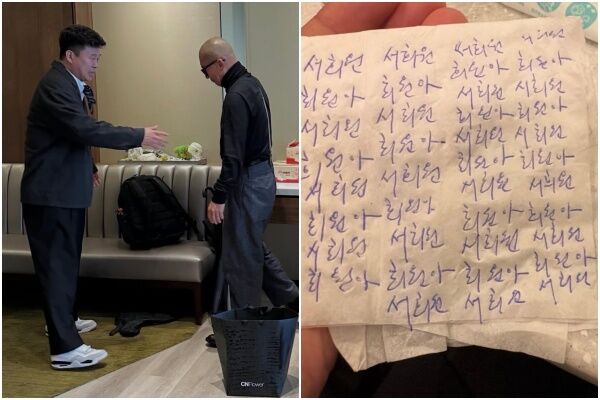 서희원 서희원 서희원 서희원
희원아 희원아
희원아 희원아 서희원 서희원
서희원 서희원 희원아 희원아
희원아 서희원 서희원
희원아 희원아 희원아
서희원 서희원 서희원 서희원
희원아 희원아 희원아 희원아
서희원 서희원 서희원 서희원
희원아 희원아 희원아 희원아
서희원 서희원 서희원
CNFlower